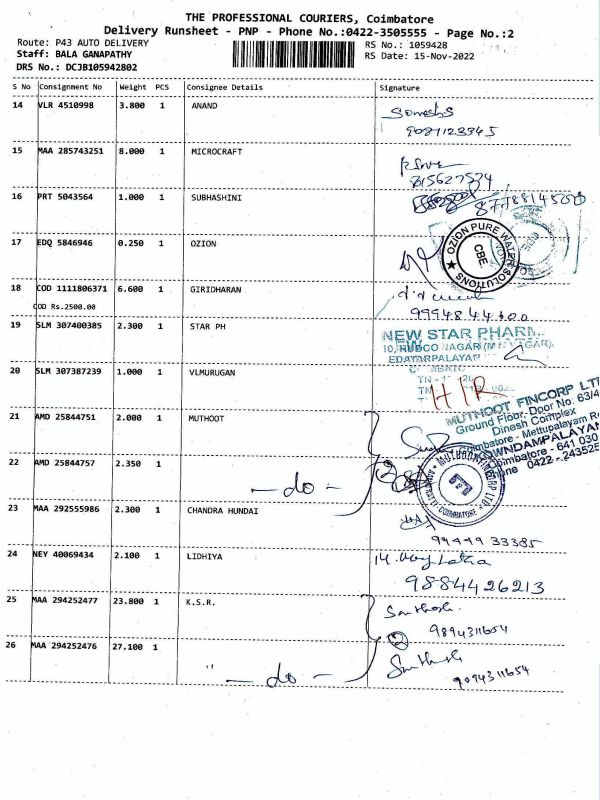 THE PROFESSIONAL COURIERS, Coimbatore
Delivery Runsheet - PNP - Phone No.:0422-3505555 - Page No.:2
Route: P43 AUTO DELIVERY
RS No.: 1059428
Staff: BALA GANAPATHY
RS Date: 15-Nov-2022
DRS No.: DCJB105942802
S No Consignment No Weight PCS Consignee Details Signature
14 VLR 4510998 3.800 1 ANAND
15 MAA 285743251 8.000 1 MICROCRAFT
16 PRT 5043564 1.000 1 SUBHASHINI
17 EDQ 5846946 0.250 1 OZION
OZION PURE WATER SOLUTIONS
CBE
18 COD 1111806371 6.600 1 GIRIDHARAN
COD Rs.2500.00
9994844100
19 SLM 307400385 2.300 1 STAR PH
NEW STAR PHARM
20 SLM 307387239 1.000 1 VLMURUGAN
HIR
21 AMD 25844751 2.000 1 MUTHOOT
MUTHOOT FINCORP LTD
Ground Floor, Door No. 63/4
Dinesh Complex
Coimbatore - Mettupalayam R
OWNDAMPALAYAM
Coimbatore - 641 030
Phone 0422 - 243525
22 AMD 25844757 2.350 1
do
2
23 MAA 292555986 2.300 1 CHANDRA HUNDAI
99449 33385
24 NEY 40069434 2.100 1 LIDHIYA
9884426213
25 MAA 294252477 23.800 1 K.S.R.
Santhosh.
9894311654
2
26 MAA 294252476 27.100 1 "
do
Santhosh